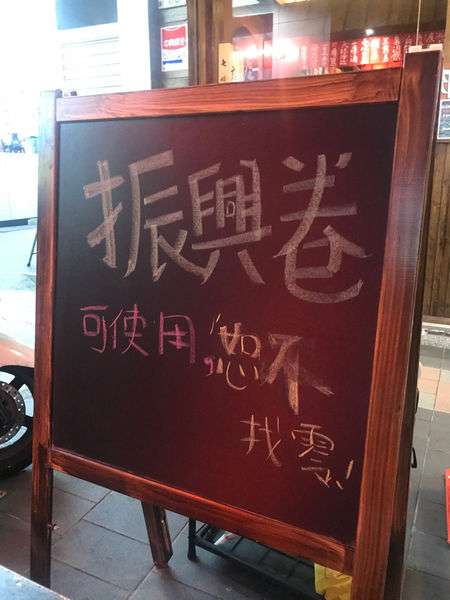 振興卷
可使用,恕不
找零!